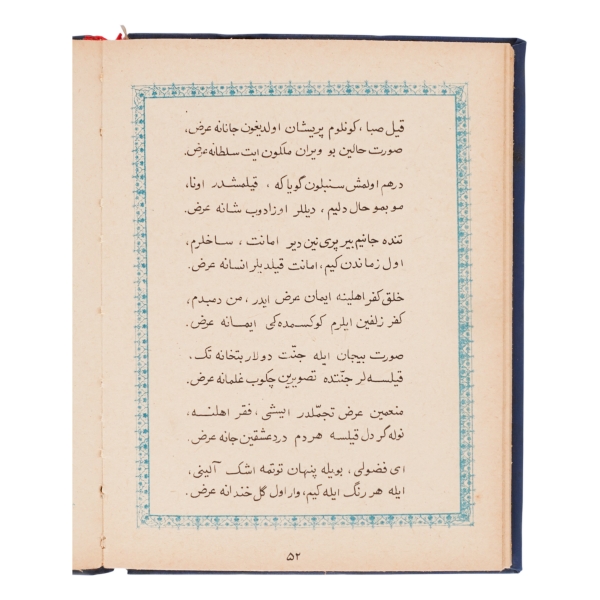 قیل صبا، کونلوم پریشان اولدیغون جانانه عرض،
صورت حالین بو ویران ملکون ایت سلطانه عرض.
درهم اولمش سنبلون گویا که قیلمشدر اونا،
مو بمو حال دلیم، دیللر اوزادوب شانه عرض.
تنده جانیم بیر پری نین دیر امانت، ساخلرم،
اول زماندن کیم، امانت قیلدیلر انسانه عرض.
خلق کفر اهلینه ایمان عرض ایدر، من دمبدم،
کفر زلفین ایلرم کوکسمده کی ایمانه عرض.
صورت بیجان ایله جنّت دولار بتخانه تک،
قیلسه لر جنّتده تصویرین چکوب غلمانه عرض.
منعمین عرض تجمّلدر ایشی، فقر اهلنه،
نوله گر دل قیلسه هر دم درد عشقین جانه عرض.
ای فضولی، بویله پنهان توتمه اشک آلینی،
ایله هر رنگ ایله کیم، وار اول گل خندانه عرض.
۵۲